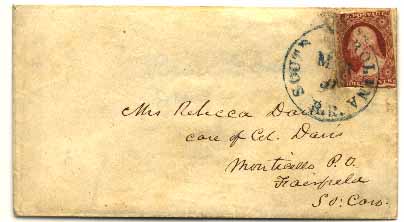 SOUTH CAROLINA
R.R.
Mrs Rebecca Davis
care of Col. Davis
Monticello P.O.
Fairfield
So: Caro.